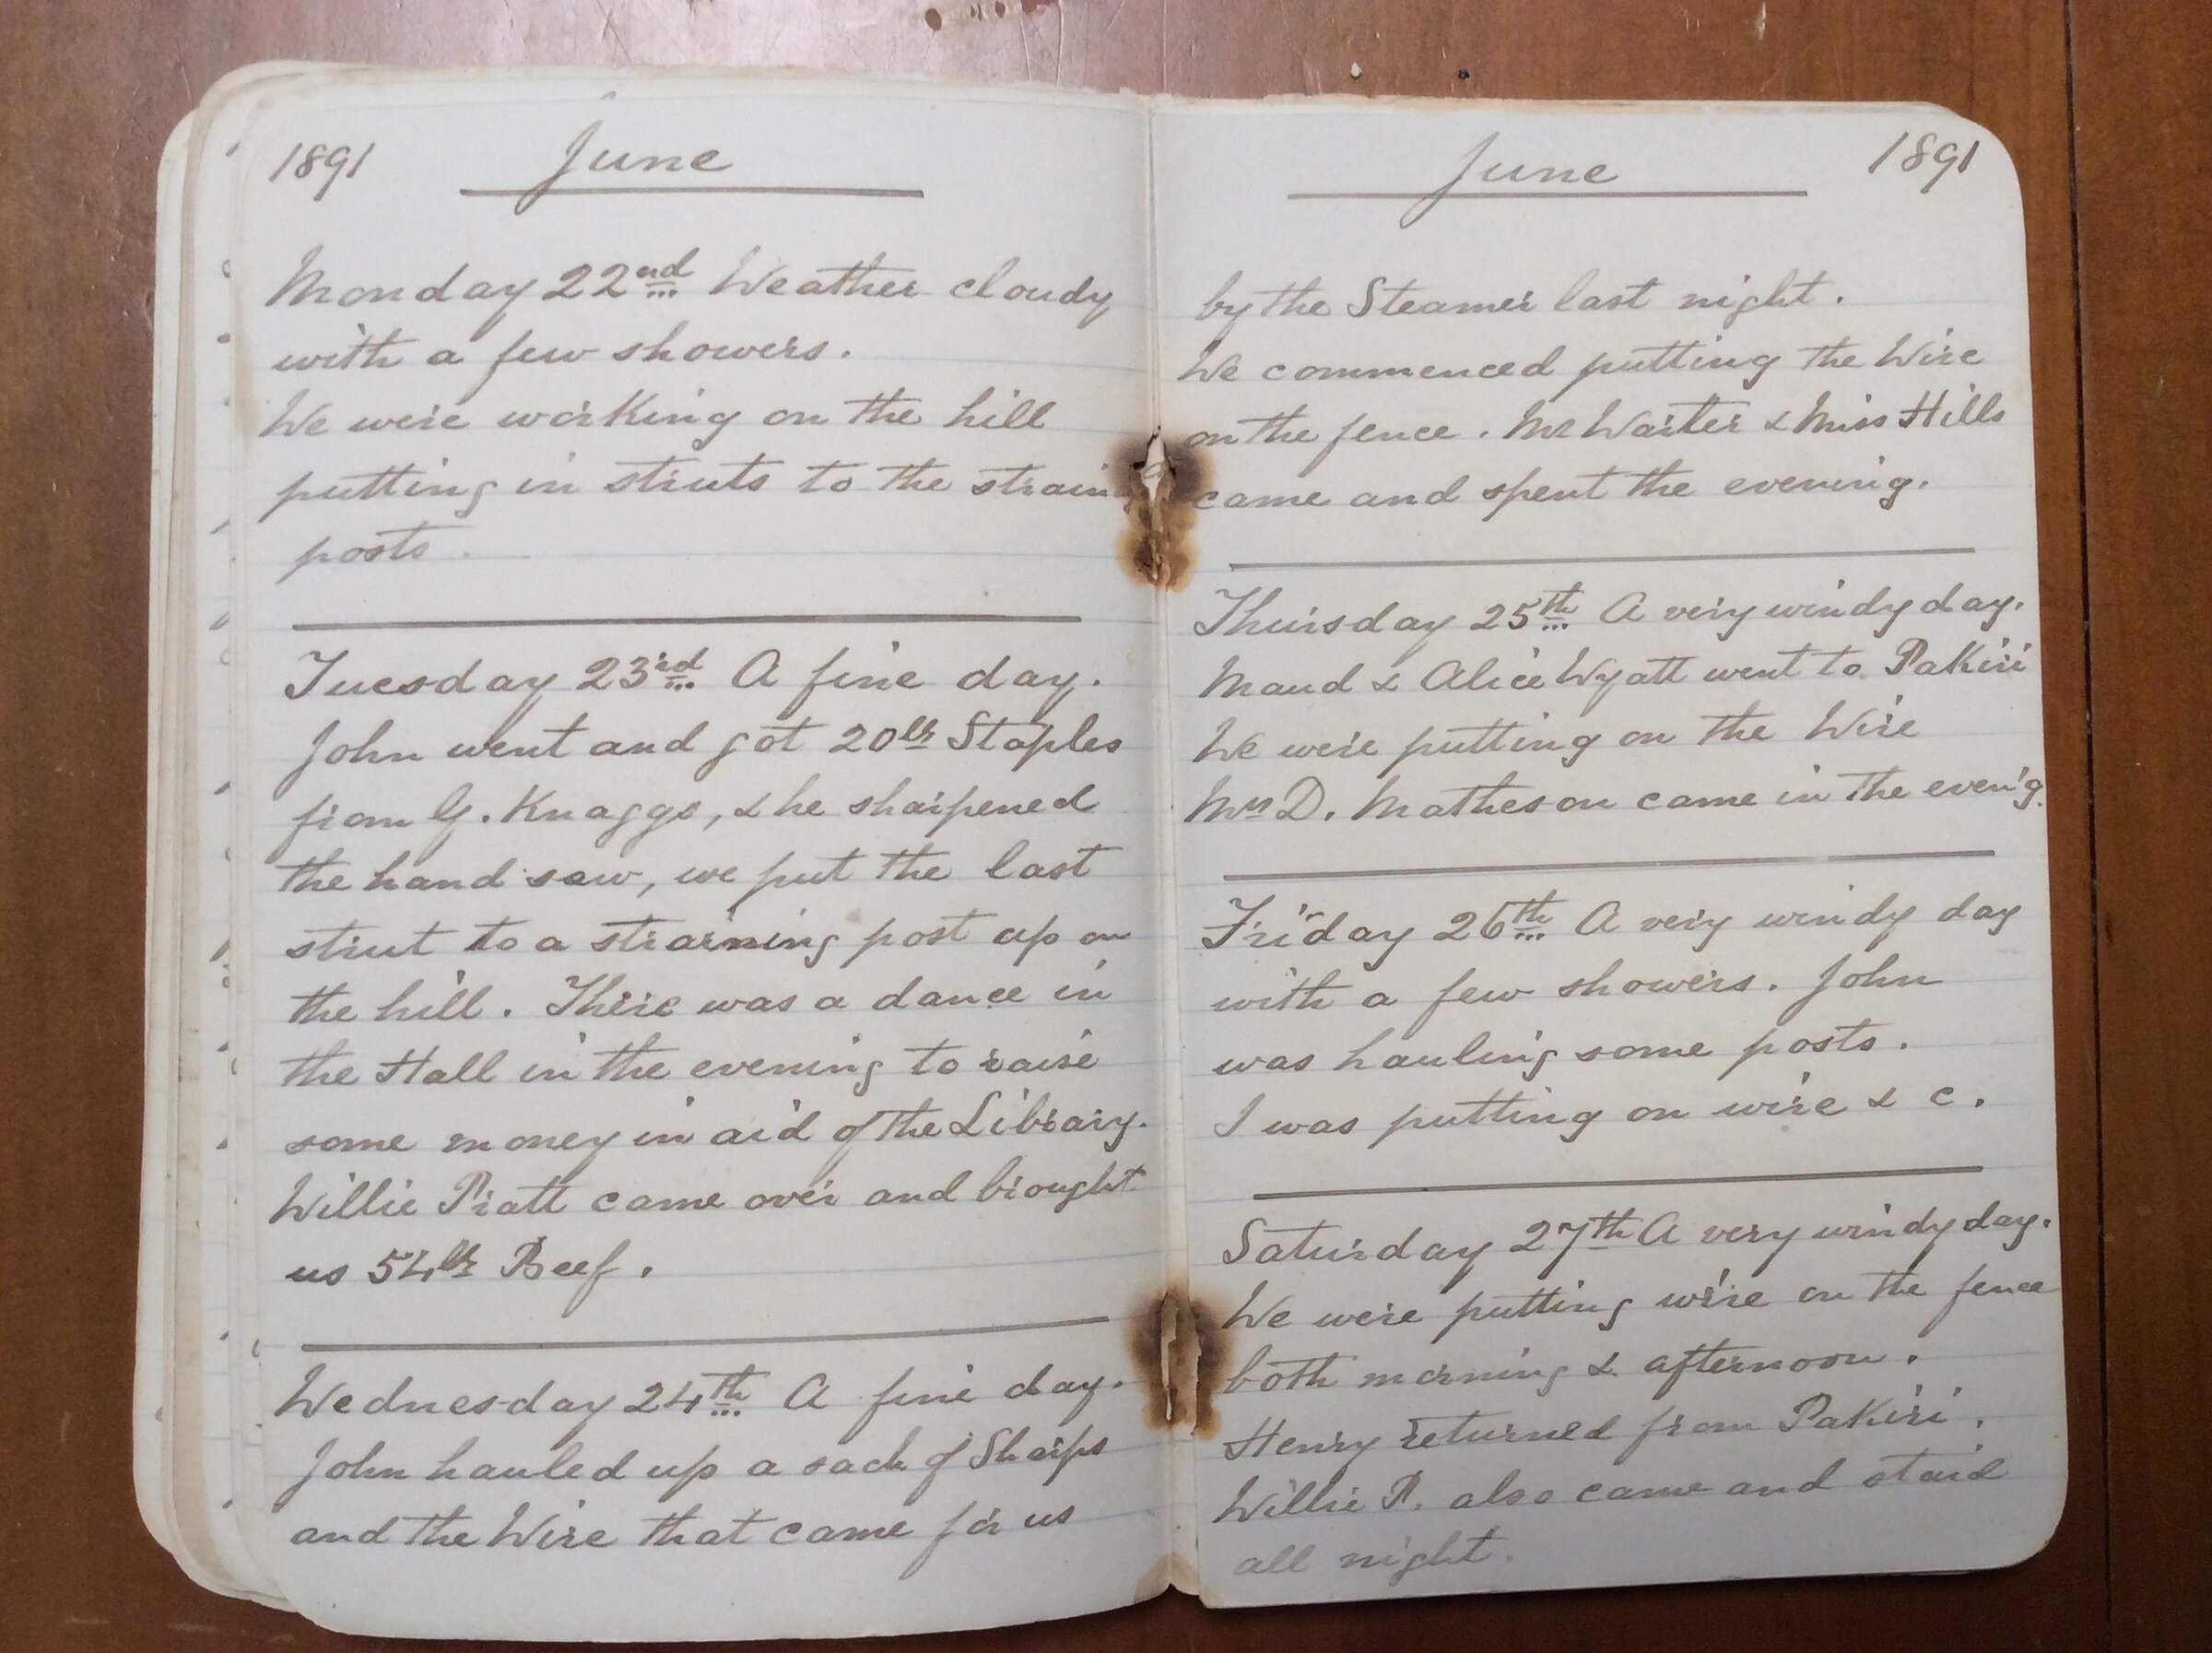 1891 June
Monday 22nd Weather cloudy
with a few showers.
We were working on the hill
putting in struts to the straing
posts.
Tuesday 23rd A fine day.
John went and got 20lb Staples
from G. Knaggs, & he sharpened
the hand saw, we put the last
strut to a straining post up on
the hill. There was a dance in
the Hall in the evening to raise
some money in aid of the Library.
Willie Pratt came over and brought
us 54lb Beef.
Wednesday 24th A fine day.
John hauled up a sack of Sharps
and the Wire that came for us
June 1891
by the Steamer last night.
We commenced putting the Wire
on the fence. Mr Warter & Miss Hills
came and spent the evening.
Thursday 25th A very windy day.
Maud & Alice Wyatt went to Pakiri
We were putting on the Wire
Mrs D. Matheson came in the even'g.
Friday 26th A very windy day
with a few showers. John
was hauling some posts.
I was putting on wire & c.
Saturday 27th A very windy day.
We were putting wire on the fence
both morning & afternoon.
Henry returned from Pakiri.
Willie P. also came and staid
all night.